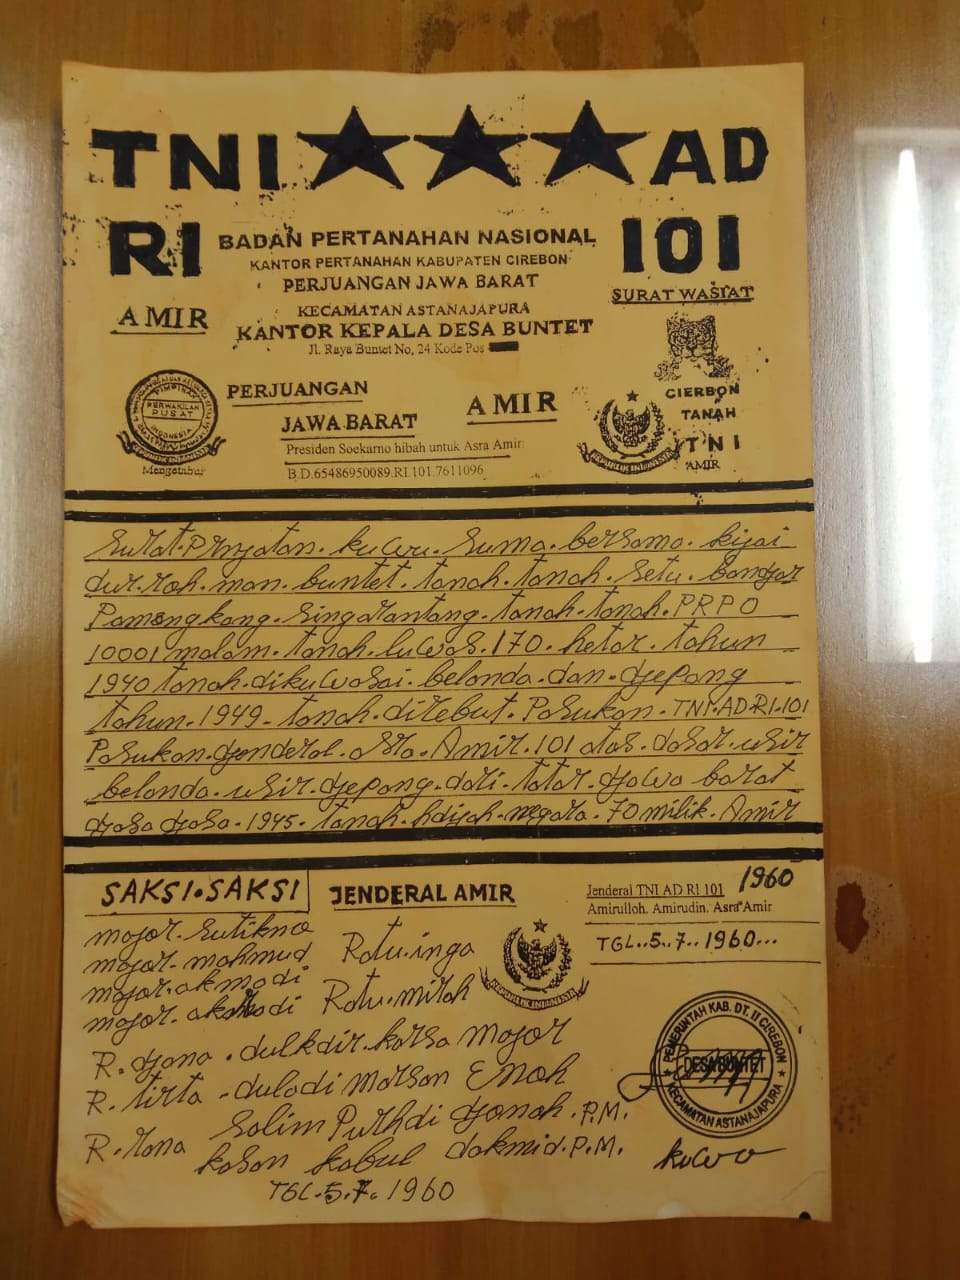 TNI ★★★ AD
RI BADAN PERTANAHAN NASIONAL 101
KANTOR PERTANAHAN KABUPATEN CIREBON
PERJUANGAN JAWA BARAT
SURAT WASIAT
AMIR
KECAMATAN ASTANAJAPURA
KANTOR KEPALA DESA BUNTET
Jl. Raya Buntet No, 24 Kode Pos
PIMPINAN
PERWAKILAN
PUSAT
INDONESIA
Mengetahui
PERJUANGAN
JAWA BARAT
AMIR
Presiden Soekarno hibah untuk Asra Amir
B.D.65486950089.RI.101.7611096
REPUBLIK INDONESIA
CIERBON
TANAH
TNI
AMIR
Surat.Prnyatan. kuwu. Suma. bersama. kijai
dur.roh.man. buntet. tanah. tanah. Setu. Bandjar
Pamengkang. Singarantang. tanah. tanah. PRPO
10001 malam. tanah. luwas. 170. hetar. tahun
1940 tanah. dikuwasai. belanda. dan. djepang
tahun. 1949. tanah. direbut. Pasukan. TNI.AD.RI.101
Pasukan. djenderal. asra. Amir. 101 atas. dasar. usir
belanda. usir. djepang. dari. tatar. djawa barat
djasa djasa. 1945. tanah. hdijah. negara. 70 milik. Amir
SAKSI.SAKSI
major. Sutikno
major. mahmud
major. akmadi
major.
R. djana. dulkdir. karsa major
R. tirta. duladi marsan Enah
R. rana Salim Purhdi djanah. P.M.
kasan kabul dakmid. P.M.
TGL.5.7. 1960
JENDERAL AMIR
Ratu. inga
Ratu. mirah
REPUBLIK INDONESIA
Jenderal TNI AD RI 101 1960
Amirulloh. Amirudin. Asra Amir
TGL..5..7..1960...
PEMERINTAH KAB. DT. II CIREBON
DESA BUNTET
KECAMATAN ASTANAJAPURA
kuwu